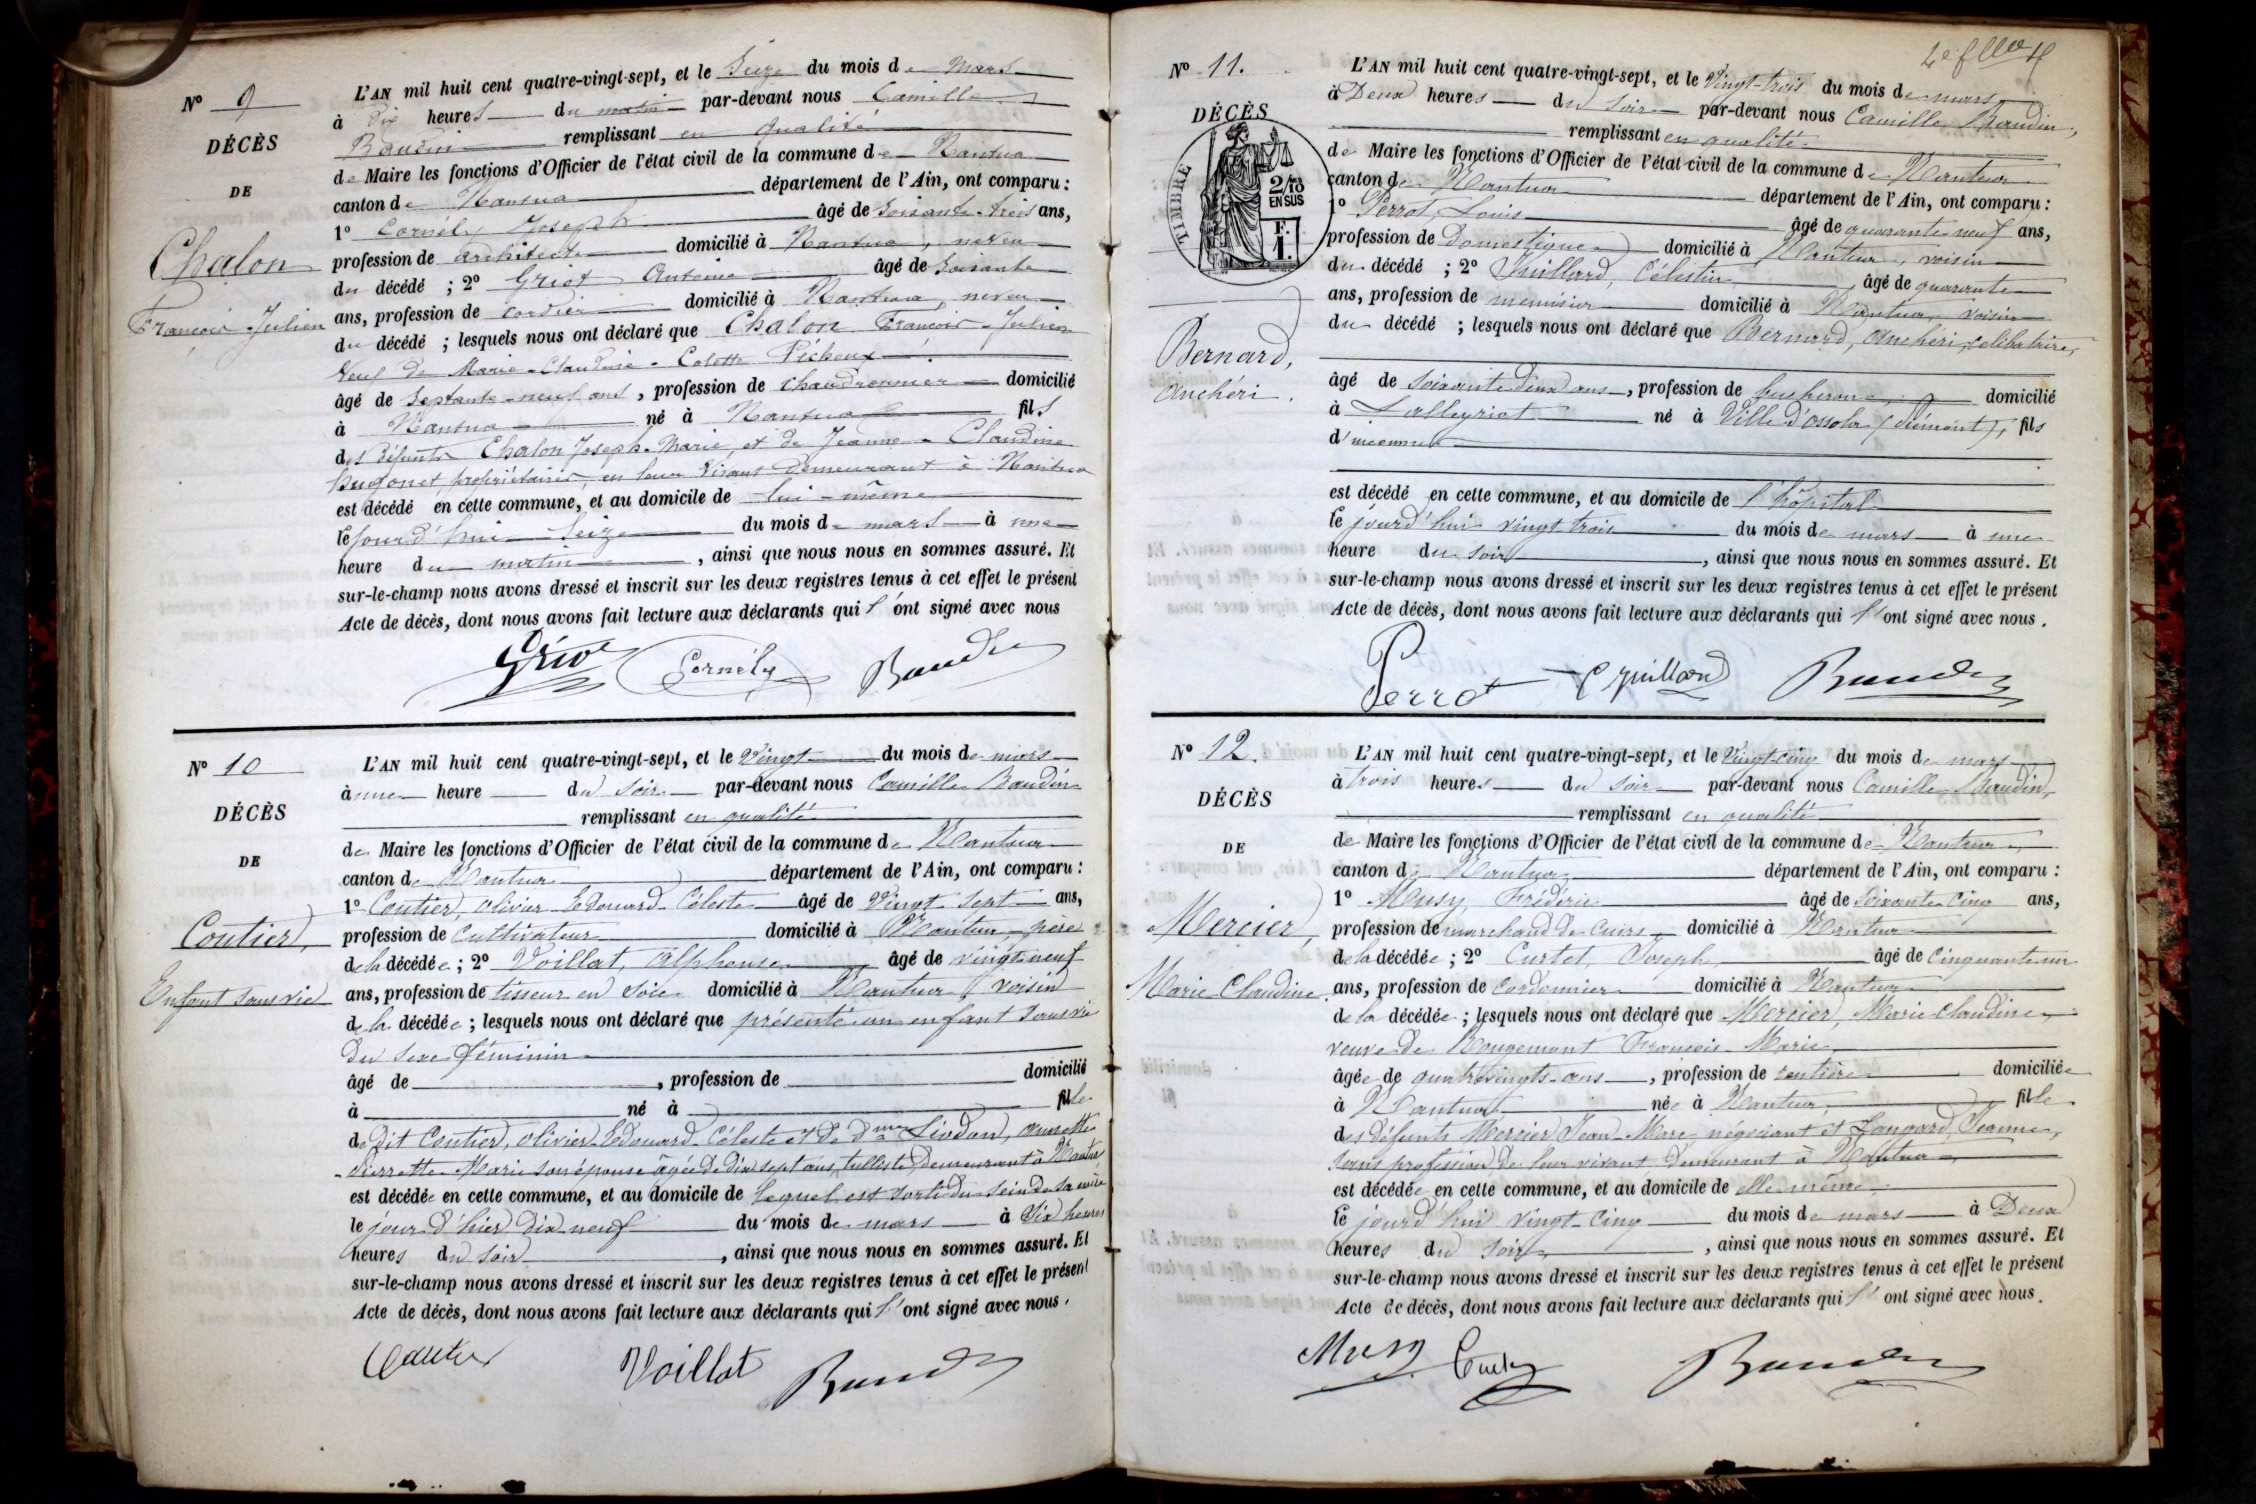 Nº 9
DÉCÈS
DE
Chalon
François-Julien
L'AN mil huit cent quatre-vingt-sept, et le Seize du mois de Mars
à Dix heures du matin par-devant nous Camille
Baudin remplissant en qualité
de Maire les fonctions d'Officier de l'état civil de la commune de Nantua
canton de Nantua département de l'Ain, ont comparu :
1º Cornély Joseph âgé de soixante-trois ans,
profession de architecte domicilié à Nantua, neveu
du décédé ; 2º Griot Antoine âgé de soixante
ans, profession de cordier domicilié à Nantua, neveu
du décédé ; lesquels nous ont déclaré que Chalon François-Julien
Veuf de Marie-Claudine-Colette Pécheux
âgé de septante-neuf ans, profession de chaudronnier domicilié
à Nantua né à Nantua fils
des défunts Chalon Joseph-Marie, et de Jeanne-Claudine
propriétaires, en leur vivant demeurant à Nantua
est décédé en cette commune, et au domicile de lui-même
le jourd'hui Seize du mois de mars à une
heure du matin, ainsi que nous nous en sommes assuré. Et
sur-le-champ nous avons dressé et inscrit sur les deux registres tenus à cet effet le présent
Acte de décès, dont nous avons fait lecture aux déclarants qui l'ont signé avec nous
Griot Cornély Baudin
Nº 10
DÉCÈS
DE
Coutier,
Enfant sans vie
L'AN mil huit cent quatre-vingt-sept, et le Vingt du mois de mars
à une heure du soir par-devant nous Camille Baudin
remplissant en qualité
de Maire les fonctions d'Officier de l'état civil de la commune de Nantua
canton de Nantua département de l'Ain, ont comparu :
1º Coutier, olivier Edouard Céleste âgé de Vingt sept ans,
profession de Cultivateur domicilié à Nantua, père
de la décédée ; 2º Voillat, Alphonse âgé de vingt neuf
ans, profession de tisseur en soie domicilié à Nantua, voisin
de la décédée ; lesquels nous ont déclaré que présenté un enfant sans vie
du sexe féminin
âgé de , profession de domicilié
à né à fille
de dit Coutier, olivier Edouard Céleste et de Dme Liodon, annette
Pierrette Marie son épouse âgée de dix sept ans, tulliste Demeurant à Nantua
est décédée en cette commune, et au domicile de lequel est sorti du sein de sa mère
le jour d'hier dix neuf du mois de mars à Dix heures
heures du soir, ainsi que nous nous en sommes assuré. Et
sur-le-champ nous avons dressé et inscrit sur les deux registres tenus à cet effet le présent
Acte de décès, dont nous avons fait lecture aux déclarants qui l'ont signé avec nous.
Coutier Voillat Baudin
Nº 11.
DÉCÈS
TIMBRE
2/10
EN SUS
F.
1.
Bernard,
Anchéri.
L'AN mil huit cent quatre-vingt-sept, et le Vingt-trois du mois de mars
à Deux heures du soir par-devant nous Camille Baudin,
remplissant en qualité
de Maire les fonctions d'Officier de l'état civil de la commune de Nantua
canton de Nantua département de l'Ain, ont comparu :
1º Perrot, Louis âgé de quarante neuf ans,
profession de Domestique domicilié à Nantua, voisin
du décédé ; 2º Juillard, Célestin âgé de quarante
ans, profession de menuisier domicilié à Nantua, voisin
du décédé ; lesquels nous ont déclaré que Bernard, Anchéri, célibataire,
âgé de soixante deux ans, profession de bucheron domicilié
à Lalleyriat né à Ville d'ossola (Piémont), fils
d'inconnus
est décédé en cette commune, et au domicile de l'hôpital
le jourd'hui vingt trois du mois de mars à une
heure du soir, ainsi que nous nous en sommes assuré. Et
sur-le-champ nous avons dressé et inscrit sur les deux registres tenus à cet effet le présent
Acte de décès, dont nous avons fait lecture aux déclarants qui l'ont signé avec nous.
Perrot C Juillard Baudin
Nº 12.
DÉCÈS
DE
Mercier,
Marie Claudine
L'AN mil huit cent quatre-vingt-sept, et le Vingt-cinq du mois de mars
à trois heures du soir par-devant nous Camille Baudin,
remplissant en qualité
de Maire les fonctions d'Officier de l'état civil de la commune de Nantua
canton de Nantua département de l'Ain, ont comparu :
1º Musy, Frédéric âgé de soixante cinq ans,
profession de marchand de cuirs domicilié à Nantua
de la décédée ; 2º Curtet, Joseph âgé de cinquante un
ans, profession de Cordonnier domicilié à Nantua
de la décédée ; lesquels nous ont déclaré que Mercier, Marie Claudine,
veuve de Rougemont François-Marie,
âgée de quatre vingts ans, profession de rentière domiciliée
à Nantua née à Nantua, fille
des défunts Mercier Jean-Marc, négociant et Jeanne,
sans profession de leur vivant demeurant à Nantua
est décédée en cette commune, et au domicile de elle même
le jourd'hui vingt-cinq du mois de mars à Deux
heures du soir, ainsi que nous nous en sommes assuré. Et
sur-le-champ nous avons dressé et inscrit sur les deux registres tenus à cet effet le présent
Acte de décès, dont nous avons fait lecture aux déclarants qui l'ont signé avec nous.
Musy Curtet Baudin